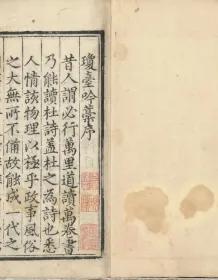 瓊臺吟藁序
昔人謂必行萬里道讀萬卷書
乃能讀杜詩蓋杜之為詩也悉
人情該物理以極乎政事風俗
之大無所不備故能成一代之